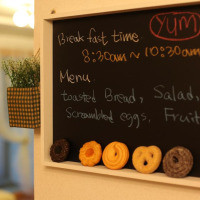 YUM
Break fast time
8:30am ~ 10:30am
Menu
toasted Bread, Salad,
Scrambled eggs, Fruit